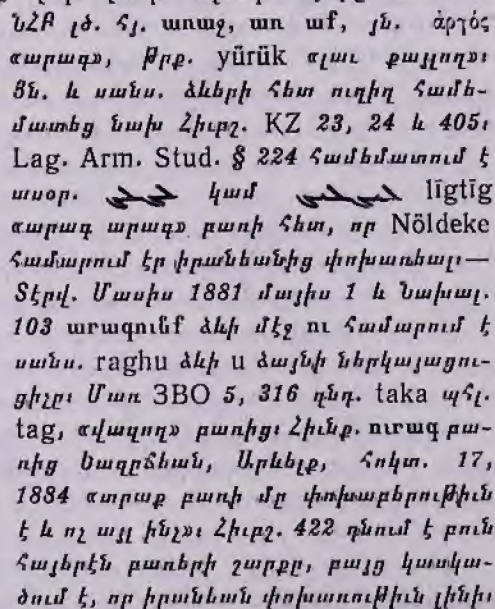 ՆՀԲ լծ. հյ. առաջ, առ աք, յն. ἀργός
«արագ», թրք. yürük «լաւ քայլող»։
Յն. և սանս. ձևերի հետ ուղիղ համե-
մատեց նախ Հիւբշ. KZ 23, 24 և 405։
Lag. Arm. Stud. § 224 համեմատում է
ասոր. կամ līgtīg
«արագ արագ» բառի հետ, որ Nöldeke
համարում էր իրանեանից փոխառեալ։—
Տէրվ. Մասիս 1881 մայիս 1 և Նախալ.
103 արագունք ձևի մէջ ու համարում է
սանս. raghu ձևի u ձայնի ներկայացու-
ցիչը։ Մառ ЗВО 5, 316 զնդ. taka պհլ.
tag, «վազող» բառից։ Հիւնք. ուրագ բա-
ռից Նազըճեան, Արևելք, հոկտ. 17,
1884 «տրաք բառի մը փոխաբերութիւն
է և ոչ այլ ինչ»։ Հիւբշ. 422 դնում է բուն
հայերէն բառերի շարքը, բայց կասկա-
ծում է, որ իրանեան փոխառութիւն լինի։